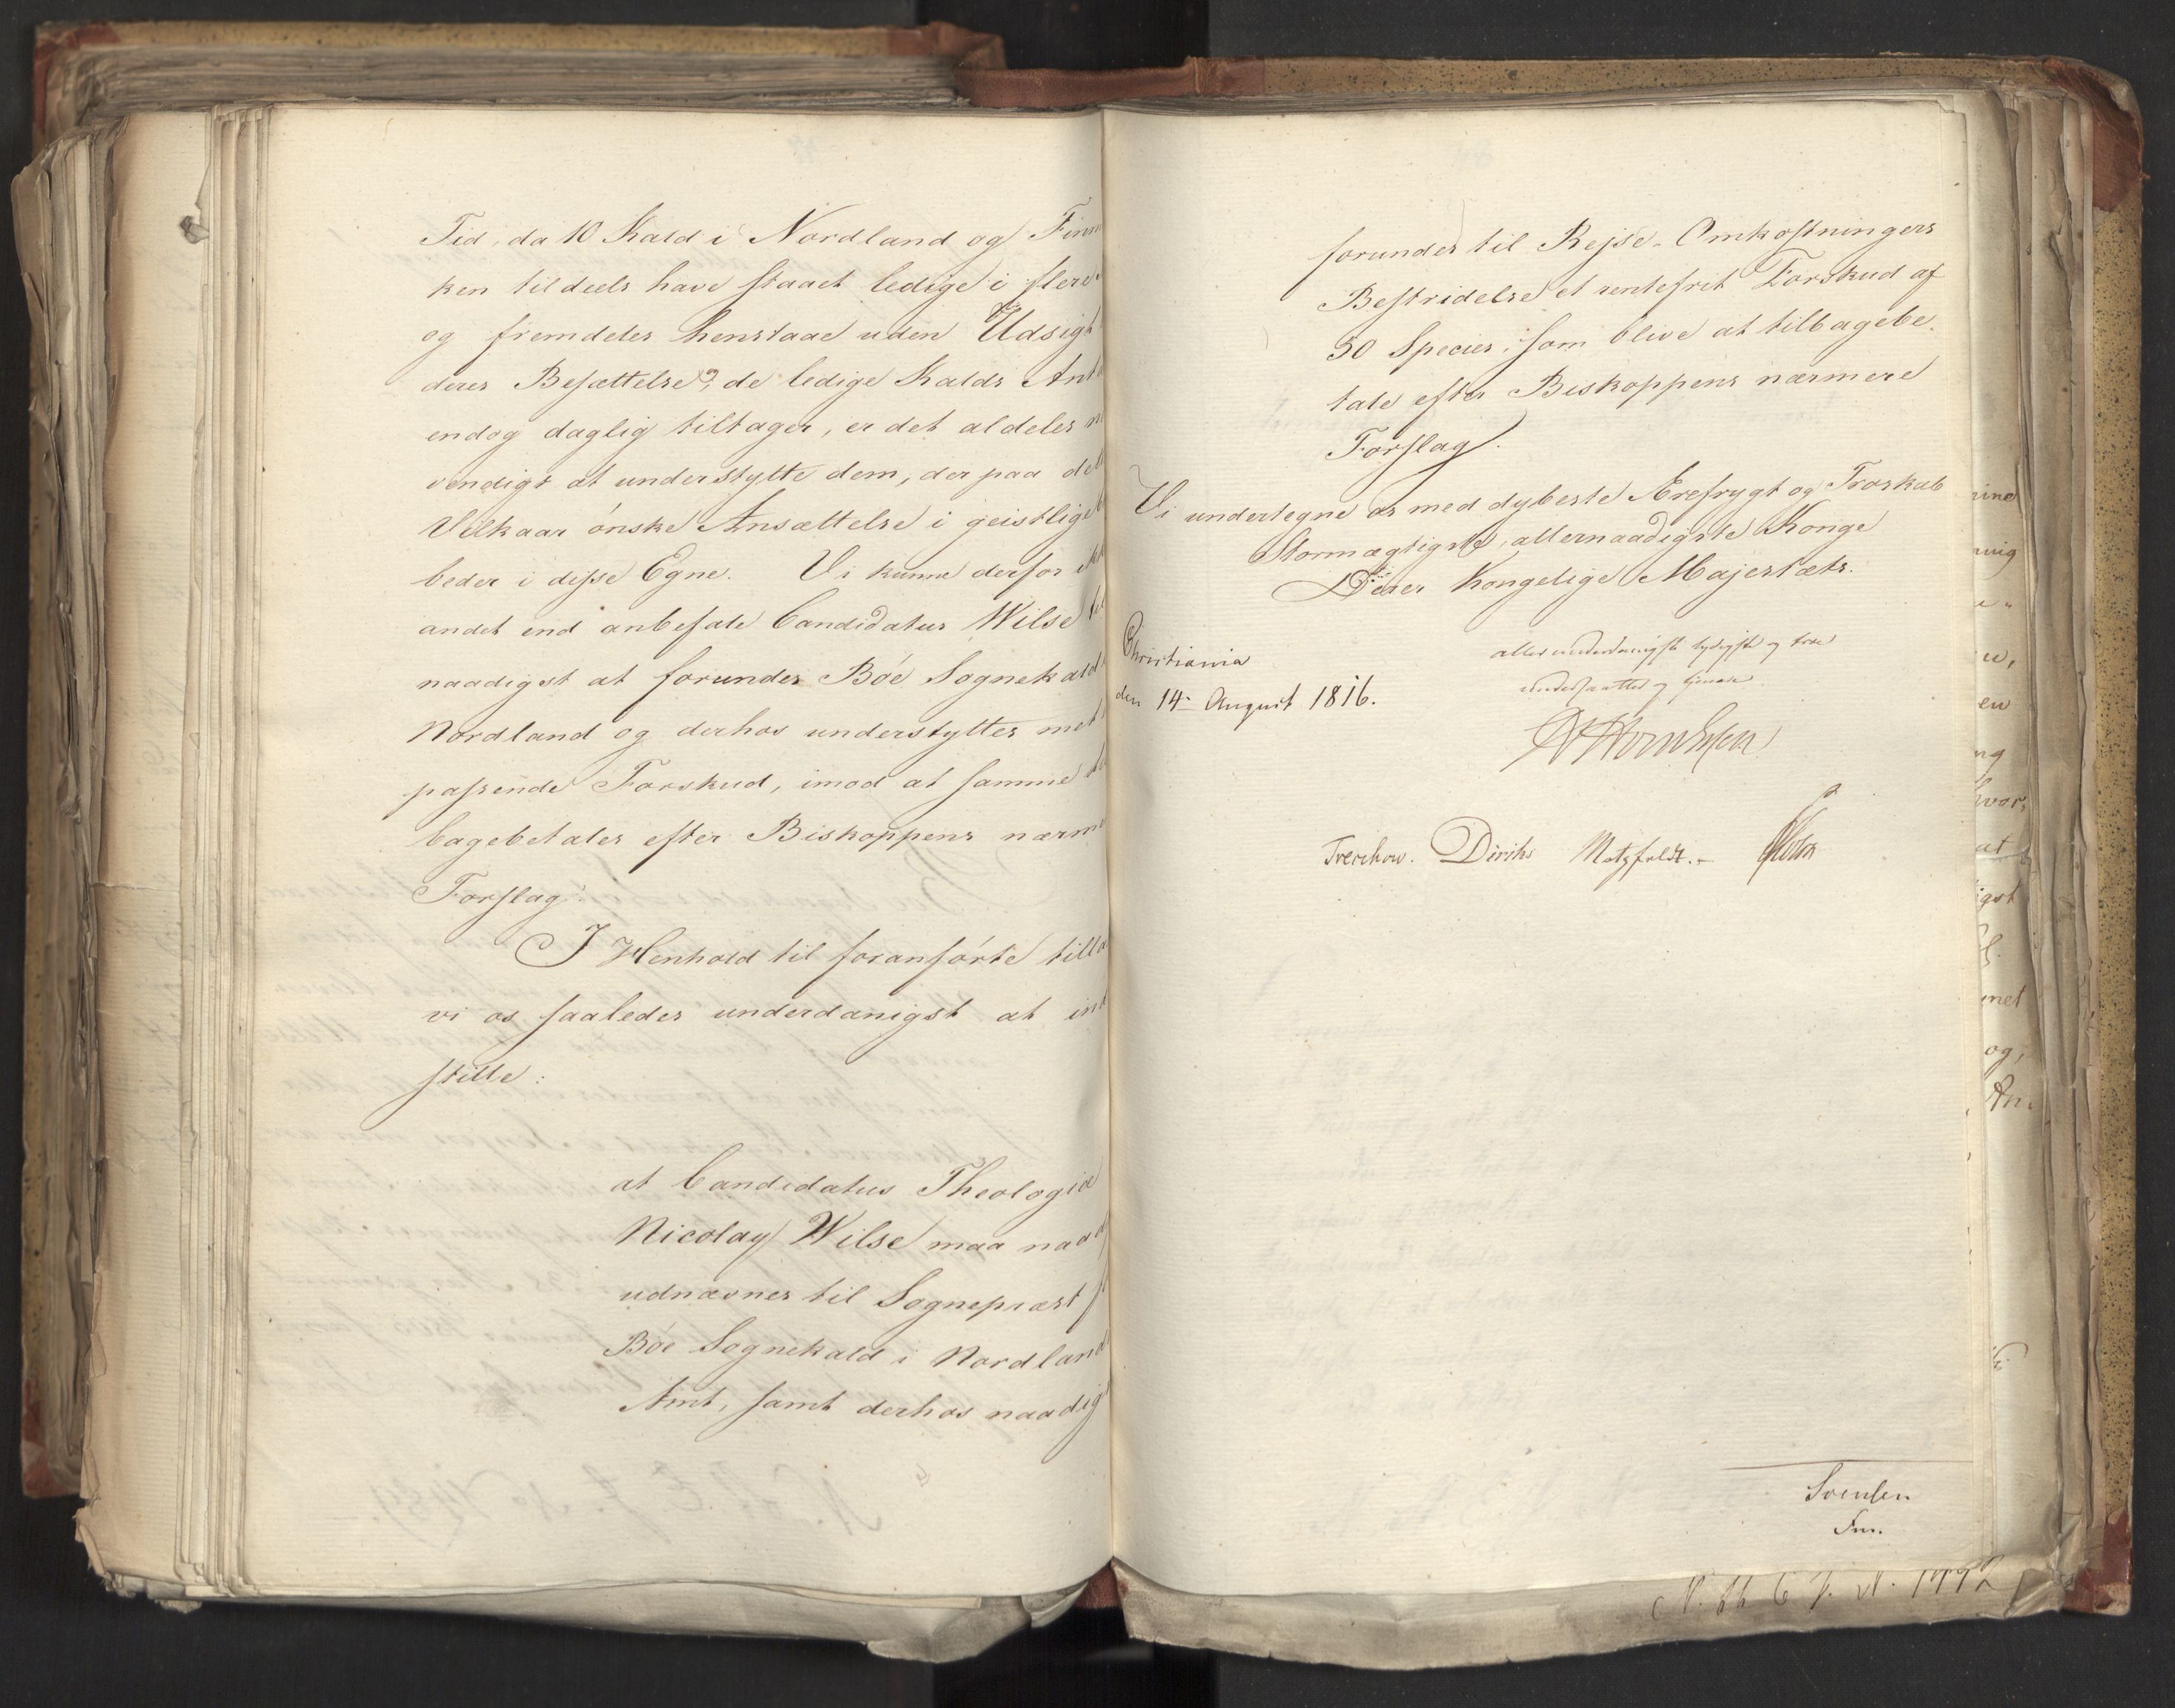 Tid, da 10 Kald i Nordland og Finm
ken tildeels have staaet ledige i flere
og fremdeles henstaae uden Udsigt
deres Besættelse, de ledige Kalds Ant
endog daglig tiltager, er det aldeles n
vendigt at understytte dem, der paa de
Vilkaar ønske Ansættelse i geistlige
beder i disse Egne. Vi kunne derfor ik
andet end anbefale Candidatus Wilse til
naadigst at forundes Bøe Sognekald
Nordland og derhos understyttes met
passende Forskud, imod at samme
bagebetales efter Biskoppens nærme
Forslag.
I Henhold til foranførte tilla
vi os saaledes underdanigst at ind
stille:
at Candidatus Theologiæ
Nicolay Wilse maa naad
udnævnes til Sognepræst f
Bøe Sognekald i Nordland
Amt, samt derhos naadig
forundes til Rejse-Omkostningers
Bestridelse et rentefrit Forskud af
50 Species, som blive at tilbagebe-
tale efter Biskoppens nærmere
Forslag.
Vi undertegne os med dybeste Ærefrygt og Troskab
Stormægtigste, allernaadigste Konge
Deres Kongelige Majestæts.
Christiania
den 14de August 1816.
allerunderdanigste lydigste og troe
undersaatter og tjenere
Treschow. Diriks Motzfeldt.
Svensen
Fm.